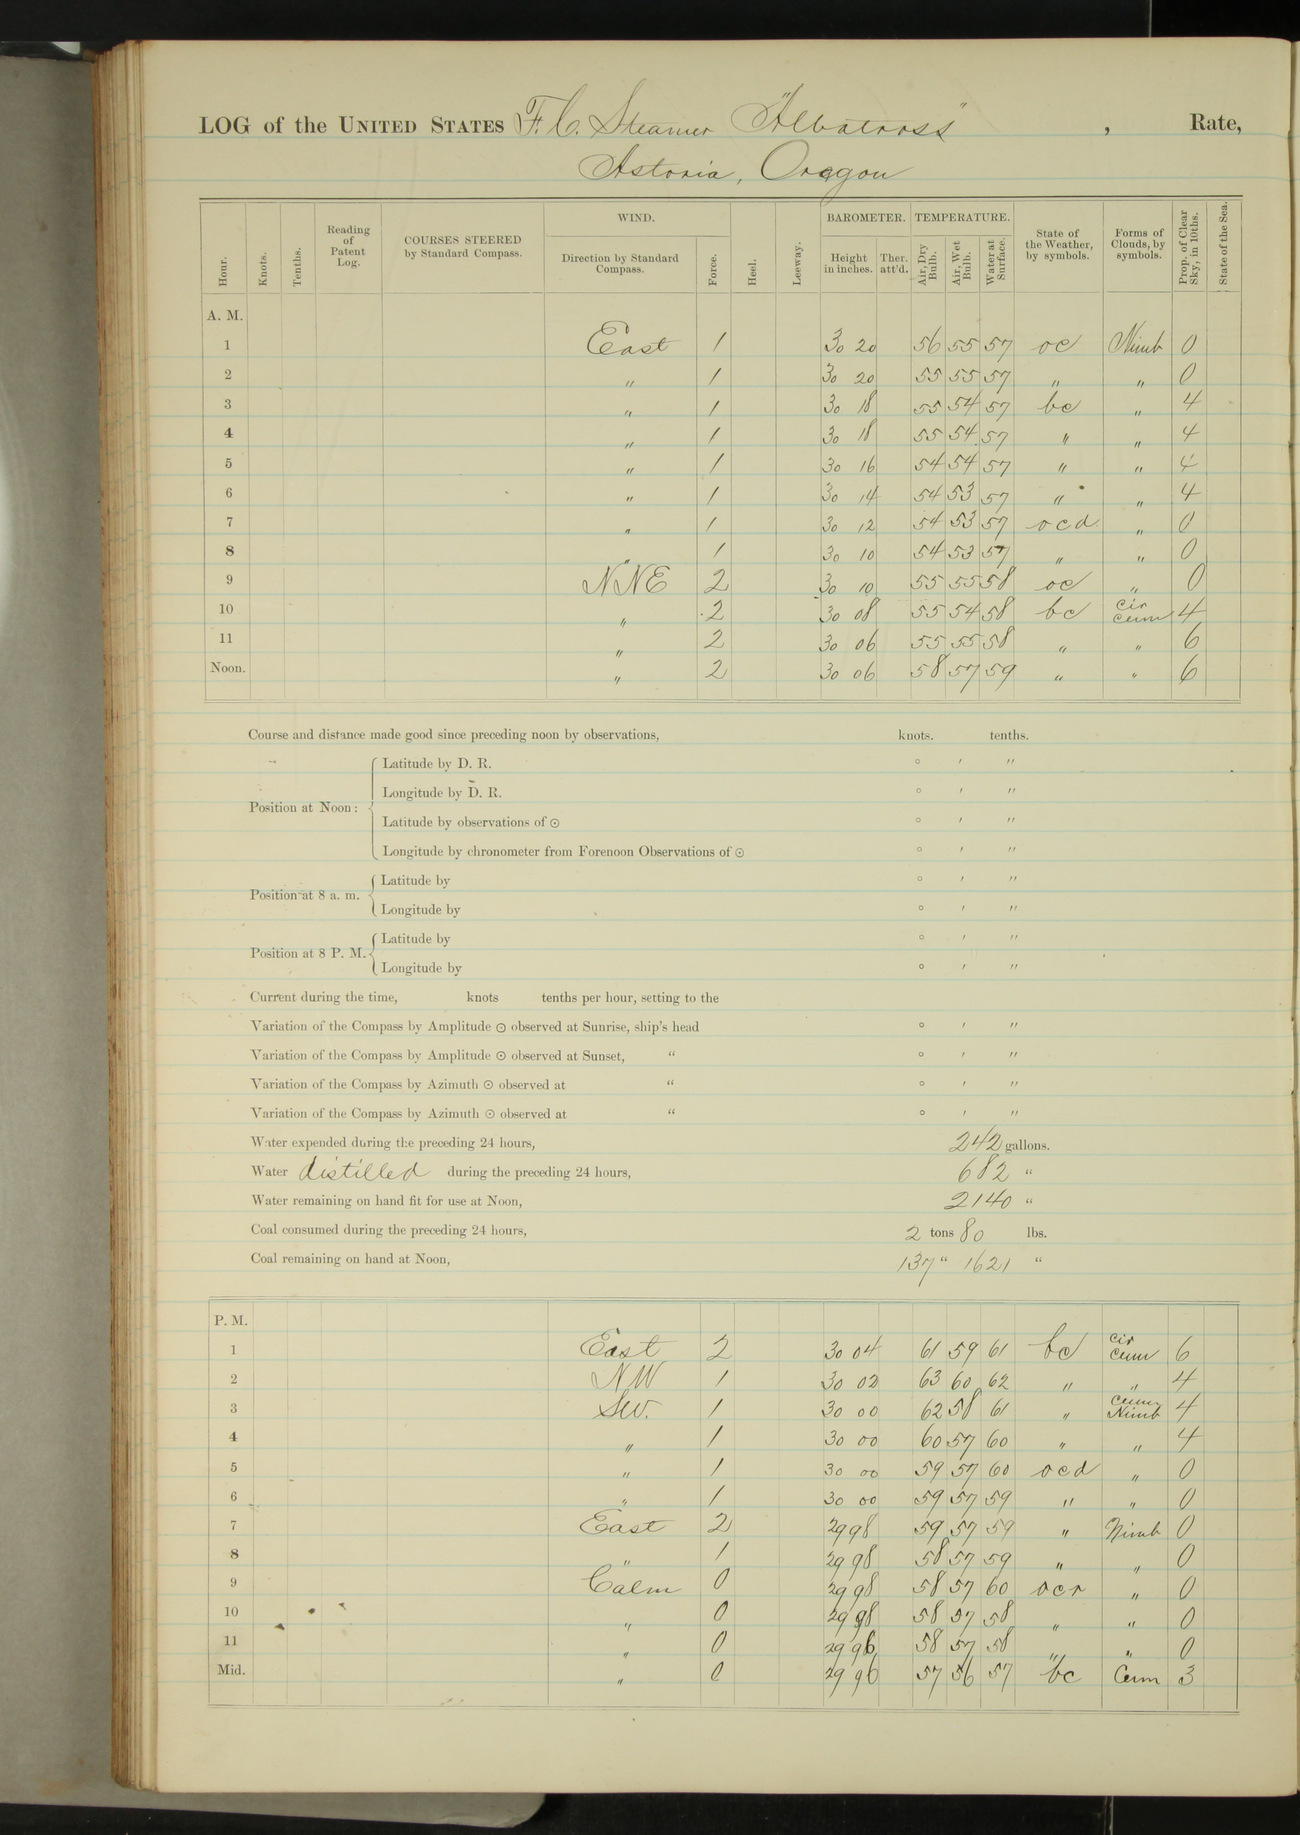 LOG of the UNITED STATES F.C. Steamer "Albatross", Rate,
Astoria, Oregon
Hour. Knots. Tenths. Reading of Patent Log. COURSES STEERED by Standard Compass. WIND. Direction by Standard Compass. Force. Heel. Leeway. BAROMETER. Height in inches. Ther. att'd. TEMPERATURE. Air, Dry Bulb. Air, Wet Bulb. Water at Surface. State of the Weather, by symbols. Forms of Clouds, by symbols. Prop. of Clear Sky, in 10ths. State of the Sea.
A. M.
1 East 1 30 20 56 55 57 oc Nimb 0
2 " 1 30 20 55 55 57 " " 0
3 " 1 30 18 55 54 57 bc " 4
4 " 1 30 18 55 54 57 " " 4
5 " 1 30 16 54 54 57 " " 4
6 " 1 30 14 54 53 57 " " 4
7 " 1 30 12 54 53 57 ocd " 0
8 " 1 30 10 54 53 57 " " 0
9 NNE 2 30 10 55 55 58 oc " 0
10 " 2 30 08 55 54 58 bc Cir Cum 4
11 " 2 30 06 55 55 58 " " 6
Noon. " 2 30 06 58 57 59 " " 6
Course and distance made good since preceding noon by observations, knots. tenths.
Position at Noon:
Latitude by D. R. ° ′ ″
Longitude by D. R. ° ′ ″
Latitude by observations of ⊙ ° ′ ″
Longitude by chronometer from Forenoon Observations of ⊙ ° ′ ″
Position at 8 a. m.
Latitude by ° ′ ″
Longitude by ° ′ ″
Position at 8 P. M.
Latitude by ° ′ ″
Longitude by ° ′ ″
Current during the time, knots tenths per hour, setting to the
Variation of the Compass by Amplitude ⊙ observed at Sunrise, ship's head ° ′ ″
Variation of the Compass by Amplitude ⊙ observed at Sunset, " ° ′ ″
Variation of the Compass by Azimuth ⊙ observed at " ° ′ ″
Variation of the Compass by Azimuth ⊙ observed at " ° ′ ″
Water expended during the preceding 24 hours, 242 gallons.
Water distilled during the preceding 24 hours, 682 "
Water remaining on hand fit for use at Noon, 2140 "
Coal consumed during the preceding 24 hours, 2 tons 80 lbs.
Coal remaining on hand at Noon, 137 " 1621 "
P. M.
1 East 2 30 04 61 59 61 bc Cir Cum 6
2 NW 1 30 02 63 60 62 " " 4
3 SW. 1 30 00 62 58 61 " Cum Nimb 4
4 " 1 30 00 60 57 60 " " 4
5 " 1 30 00 59 57 60 ocd " 0
6 " 1 30 00 59 57 59 " " 0
7 East 2 29 98 59 57 59 " Nimb 0
8 " 1 29 98 58 57 59 " " 0
9 Calm 0 29 98 58 57 60 ocr " 0
10 " 0 29 98 58 57 58 " " 0
11 " 0 29 96 58 57 58 " " 0
Mid. " 0 29 96 57 56 57 bc Cum 3